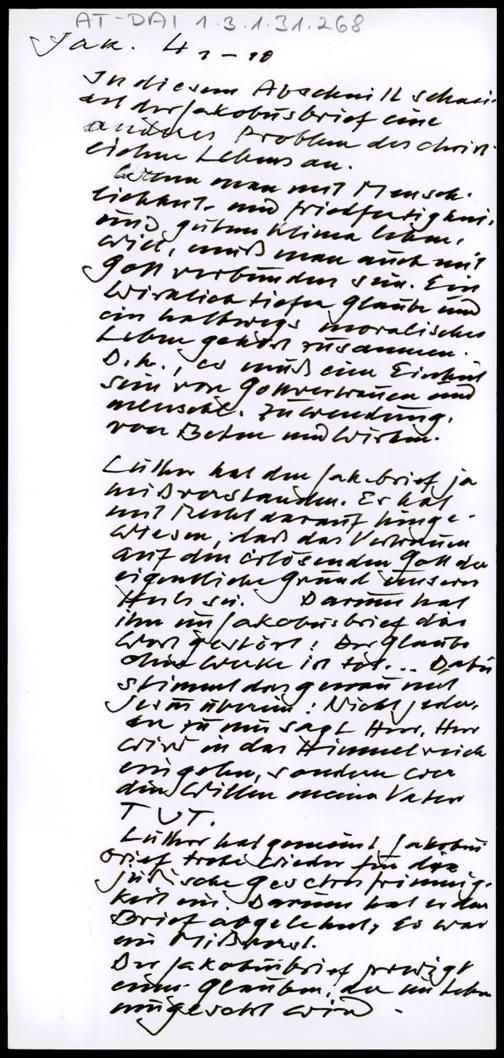 AT-DAI 1.3.1.31.268
Jak. 4 1-10
In diesem Abschnitt schnei-
det der Jakobusbrief eine
anderes Problem des christ-
lichen Lebens an.
Wenn man mit Mensch-
lichkeit und Friedfertigkeit
und gutem Klima leben
will, muß man auch mit
Gott verbunden sein. Ein
wirklich tiefer Glaube und
ein halbwegs moralisches
Leben gehört zusammen.
D.h., es muß eine Einheit
sein von Gottvertrauen und
menschl. Zuwendung,
von Beten und Wirken.
Luther hat den Jak-brief ja
mißverstanden. Er hat
mit Recht darauf hinge-
wiesen, daß das Vertrauen
auf den erlösenden Gott der
eigentliche Grund unseres
Heils sei. Darum hat
ihn im Jakobusbrief das
Wort gestört: Der Glaube
ohne Werke ist tot... Dabei
stimmt das genau mit
Jesus überein: Nicht jeder,
der zu mir sagt Herr, Herr
wird in das Himmelreich
eingehen, sondern wer
den Willen meines Vaters
TUT.
Luther hat gemeint, Jakobus
brief trete wieder für die
jüdische Gesetzesfrömmig-
keit ein. Darum hat er den
Brief abgelehnt, Es war
ein Mißverst.
Der Jakobusbrief predigt
einen Glauben, der im Leben
umgesetzt wird.